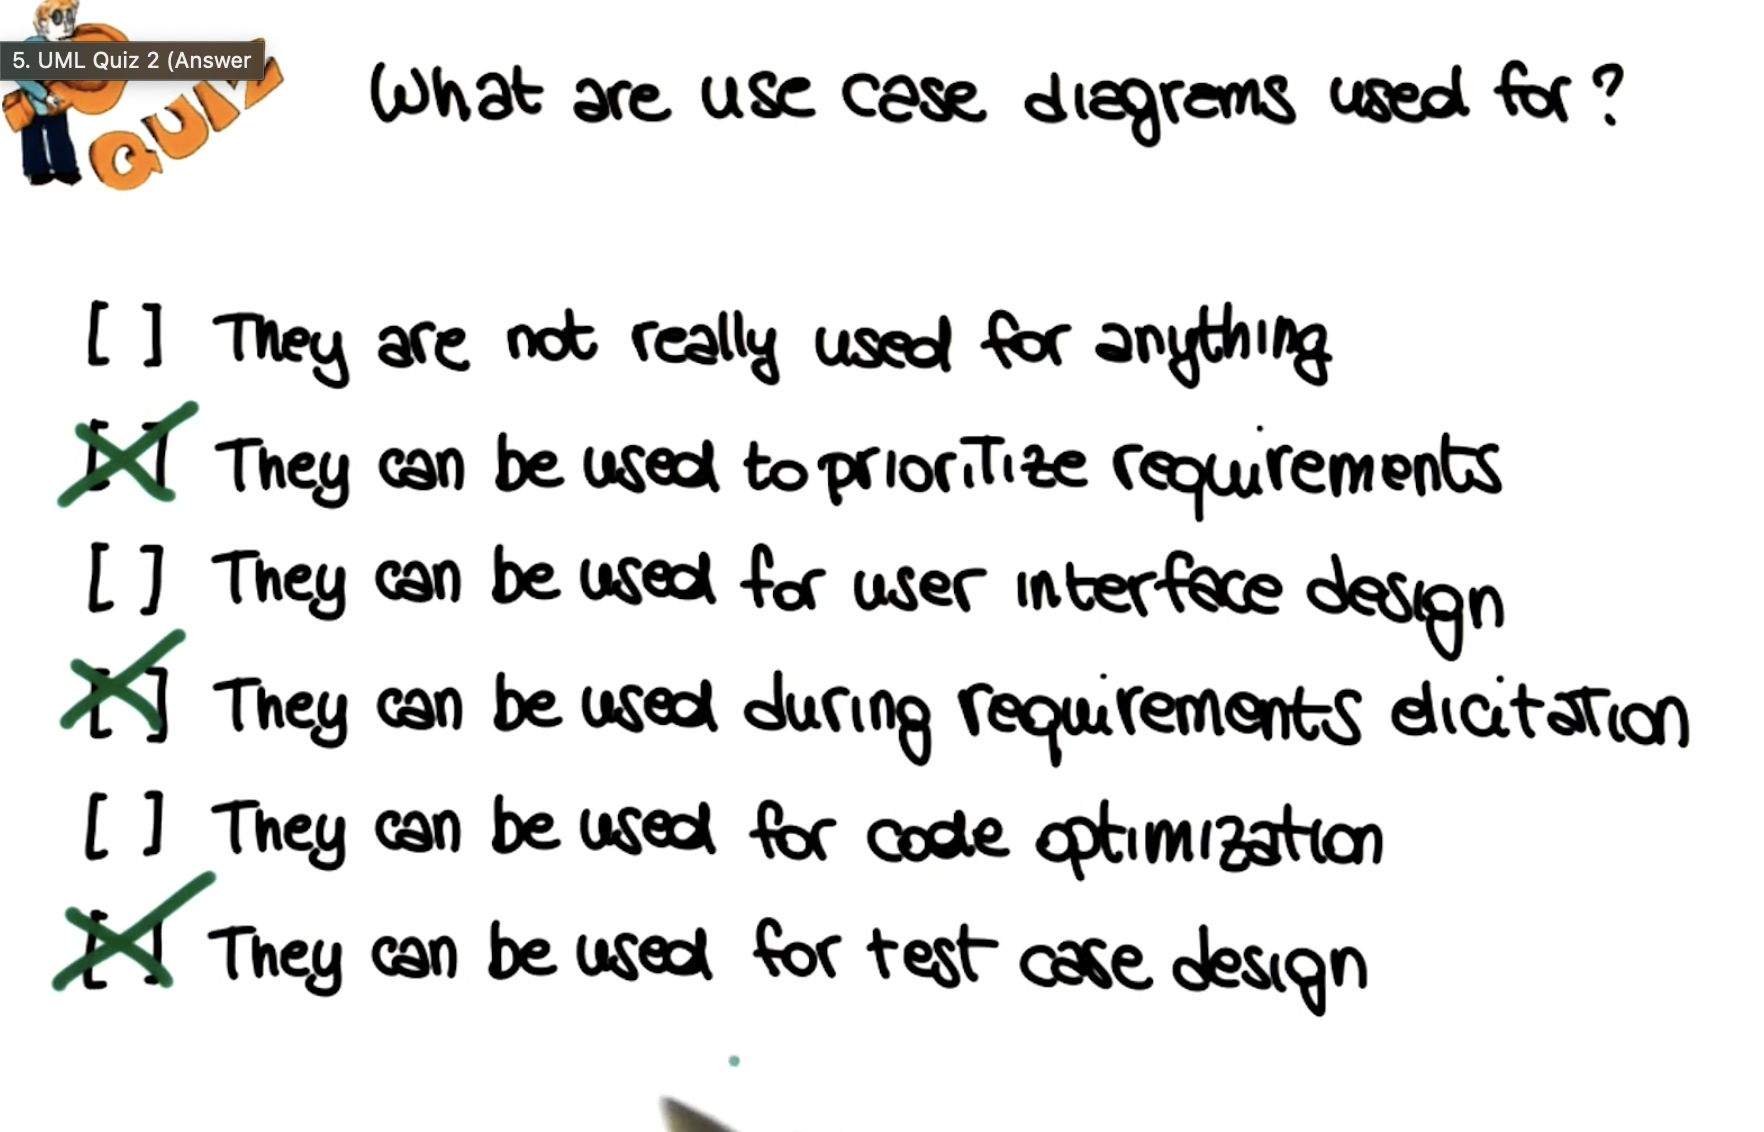 5. UML Quiz 2 (Answer
QUIZ
What are use case diagrams used for?
[ ] They are not really used for anything
[X] They can be used to prioritize requirements
[ ] They can be used for user interface design
[X] They can be used during requirements elicitation
[ ] They can be used for code optimization
[X] They can be used for test case design